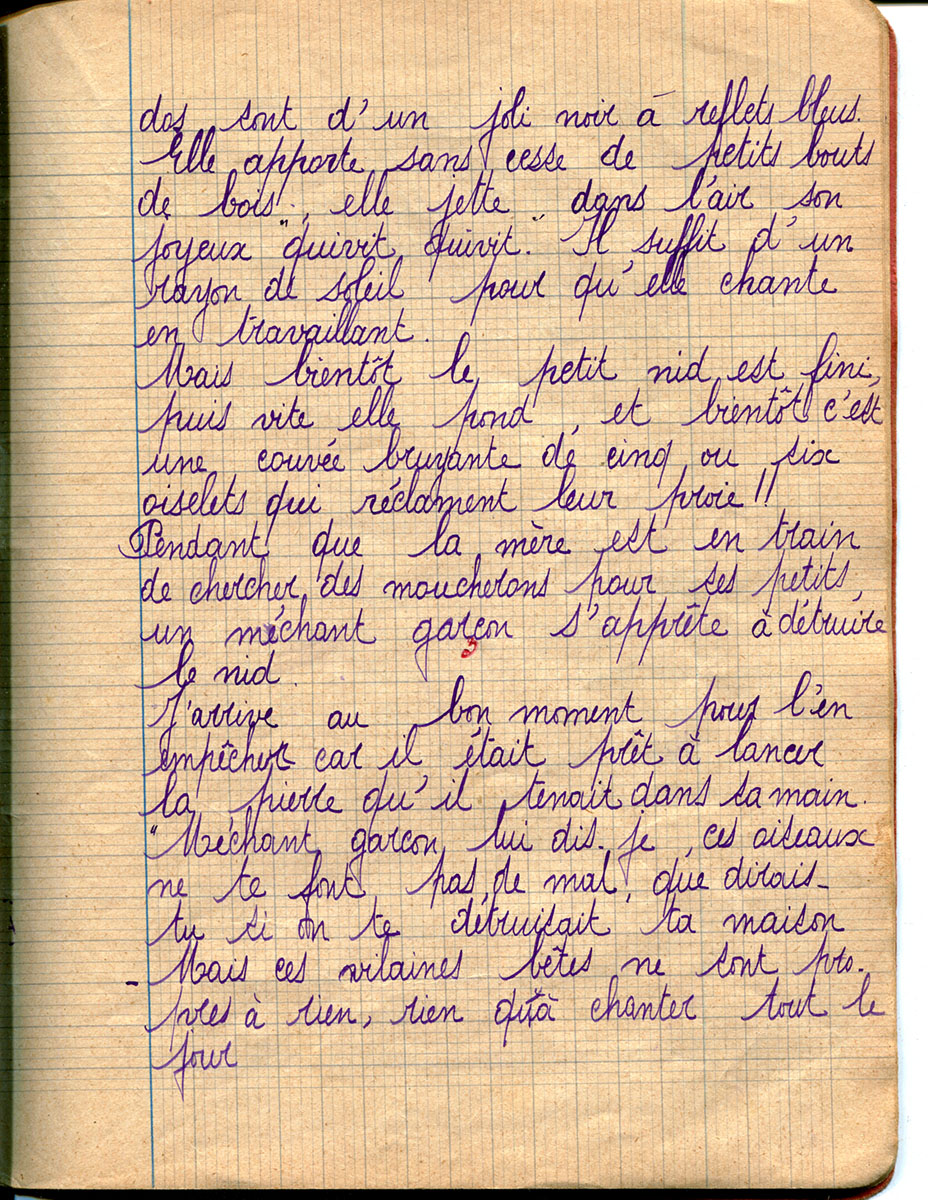 dos sont d'un joli noir à reflets bleus.
Elle apporte sans cesse de petits bouts
de bois, elle jette dans l'air son
joyeux "quivit, quivit". Il suffit d'un
rayon de soleil pour qu'elle chante
en travaillant.
Mais bientôt le petit nid est fini,
puis vite elle pond, et bientôt c'est
une couvée bruyante de cinq ou six
oiselets qui réclament leur proie!!
Pendant que la mère est en train
de chercher des moucherons pour ses petits,
un méchant garçon s'apprête à détruire
le nid.
J'arrive au bon moment pour l'en
empêcher car il était prêt à lancer
la pierre qu'il tenait dans sa main.
"Méchant garçon, lui dis-je, ces oiseaux
ne te font pas de mal, que dirais-
tu si on te détruisait ta maison
- Mais ces vilaines bêtes ne sont pro-
pres à rien, rien qu'à chanter tout le
jour